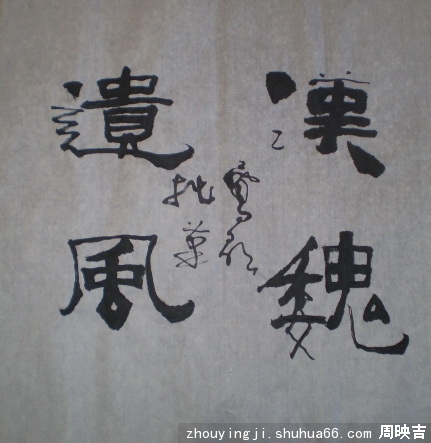 漢魏
遺風
zhouyingji.shuhua66.com 周映吉